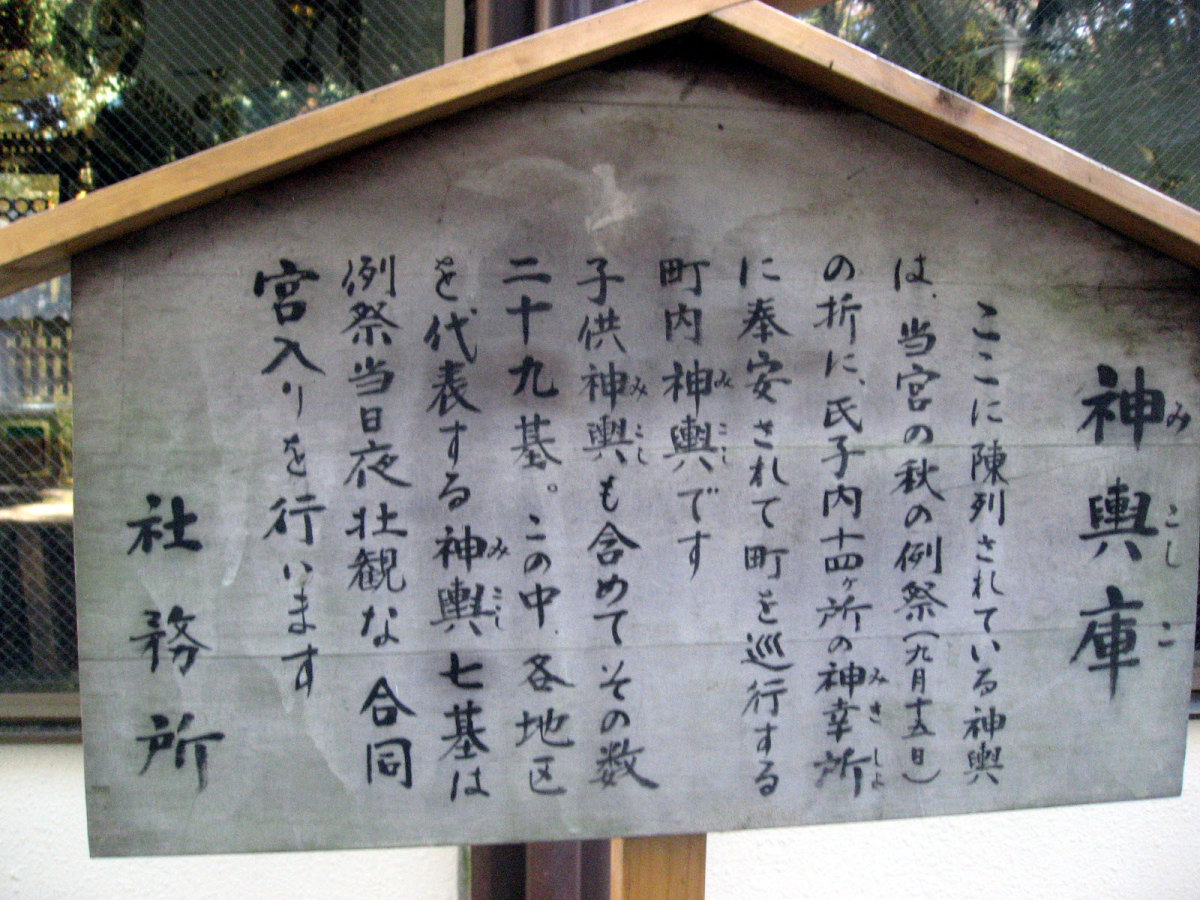 神輿庫
みこしこ
ここに陳列されている神輿
は、当宮の秋の例祭(九月十五日)
の折に、氏子内十四ヶ所の神幸所
みさしよ
に奉安されて町を巡行する
町内神輿です
みこし
子供神輿も含めてその数
みこし
二十九基。この中、各地区
を代表する神輿七基は
みこし
例祭当日夜壮観な合同
宮入りを行います
社務所